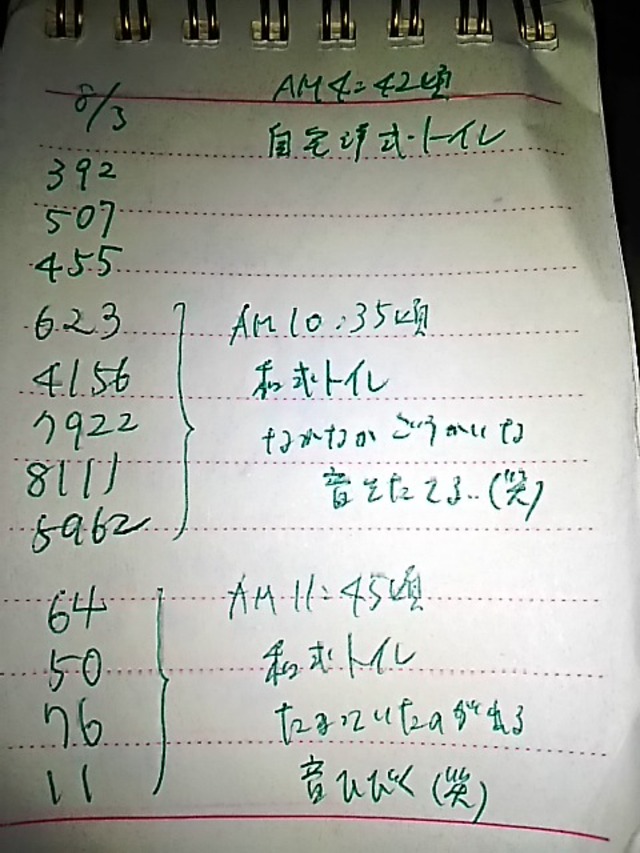 8/3
AM4:42頃
自宅洋式・トイレ
392
507
455
623
4156
7922
8111
5962
AM10:35頃
和式トイレ
なかなかごうかいな
音をたてる..(笑)
64
50
76
11
AM11:45頃
和式トイレ
たまっていたのが出る
音ひびく(笑)